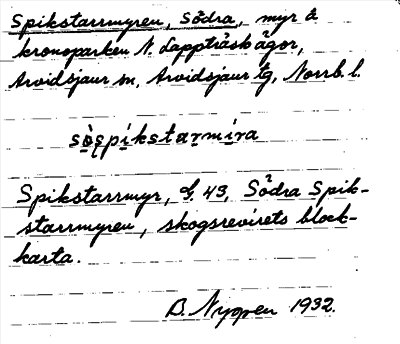 Spikstarrmyren, Södra, myr å
kronoparken N. Lappträskågor,
Arvidsjaur sn, Arvidsjaur tg, Norrb. l.
sòspíkstarmíra
Spikstarrmyr, S. 43, Södra Spik-
starrmyren, skogsrevirets block-
karta.
B. Nyppen 1932.